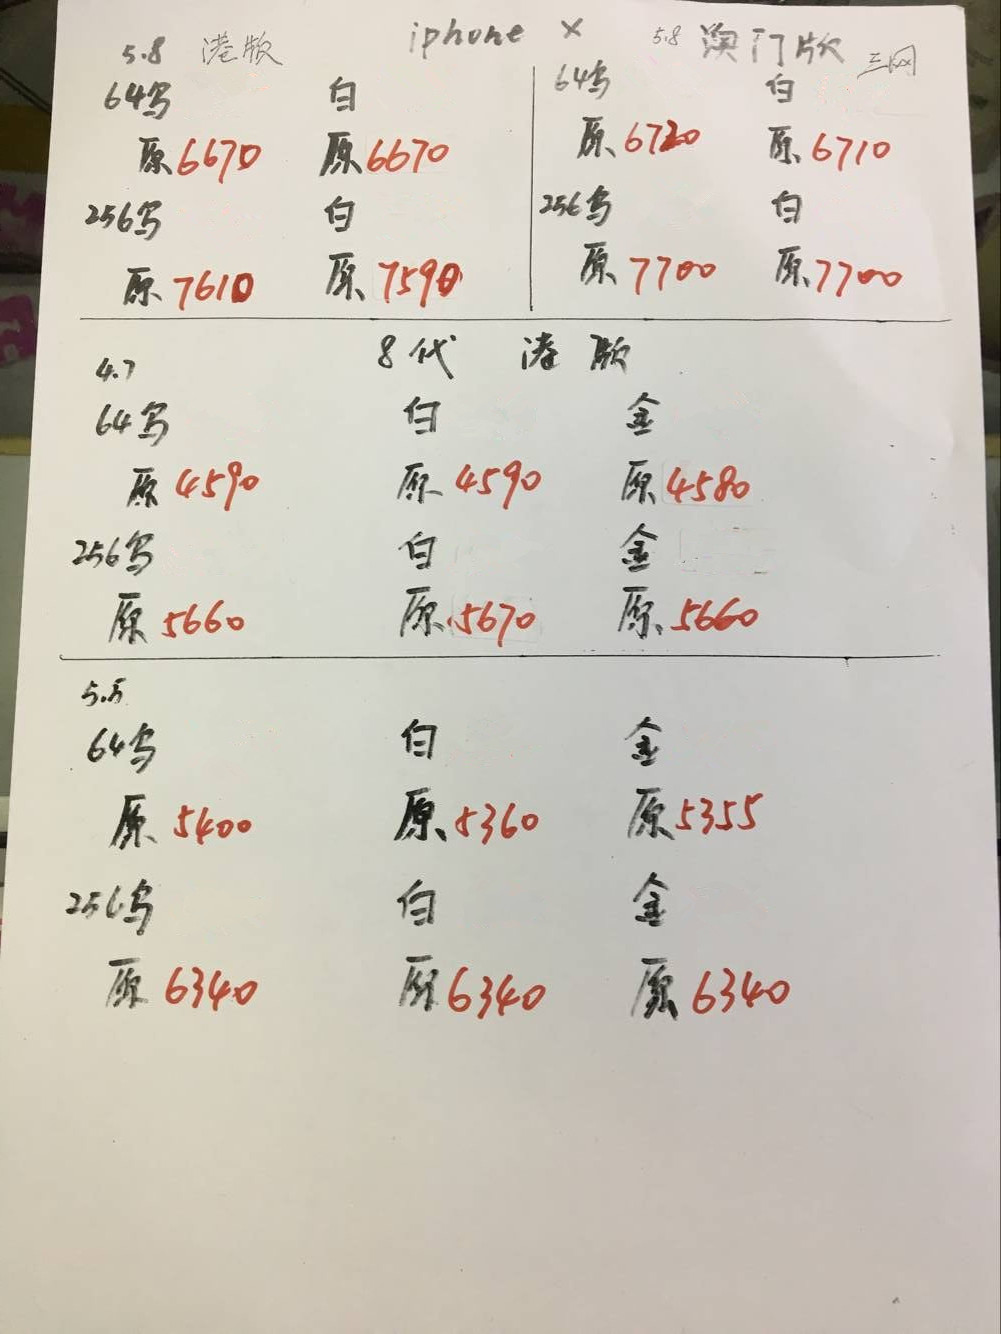 iphone X
5.8 港版
64乌 白
原 6670 原 6670
256乌 白
原 7610 原 7590
5.8 澳门版 三网
64乌 白
原 6720 原 6710
256乌 白
原 7700 原 7700
8代 港版
4.7
64乌 白 金
原 4590 原 4590 原 4580
256乌 白 金
原 5660 原 5670 原 5660
5.5
64乌 白 金
原 5400 原 5360 原 5355
256乌 白 金
原 6340 原 6340 原 6340